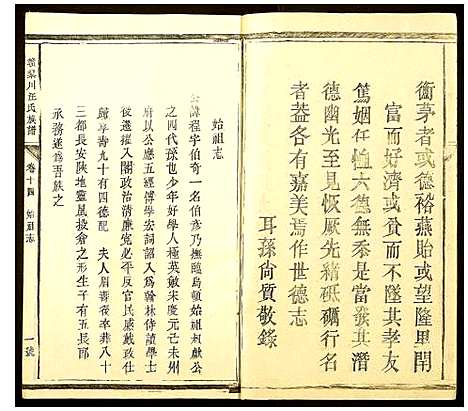 衡茅者或德裕燕貽或望隆里閈
富而好濟或貧而不墜其孝友
篤姻任恤六德無忝是當發其潛
德幽光至見恢厥先緒砥礪行名
者益各有嘉美焉作世德志
耳孫尚質敬錄
始祖志
公諱程字伯奇一名伯彥乃撫臨烏頓始祖叔獻公
之四代孫也少年好學人極英敏宋慶元己未州
府以公應五經傅學安詞詔入為翰林侍讀學士
復遷擢入閣政治清廉寬必平反官民感戴政仕
歸享壽九十有四德配 夫人眉壽復幸耄八十
三都長安陝地靈凰披爺之中生子有五長郎
承務遂為吾族之
汪氏族譜
卷十四
始祖志
一號